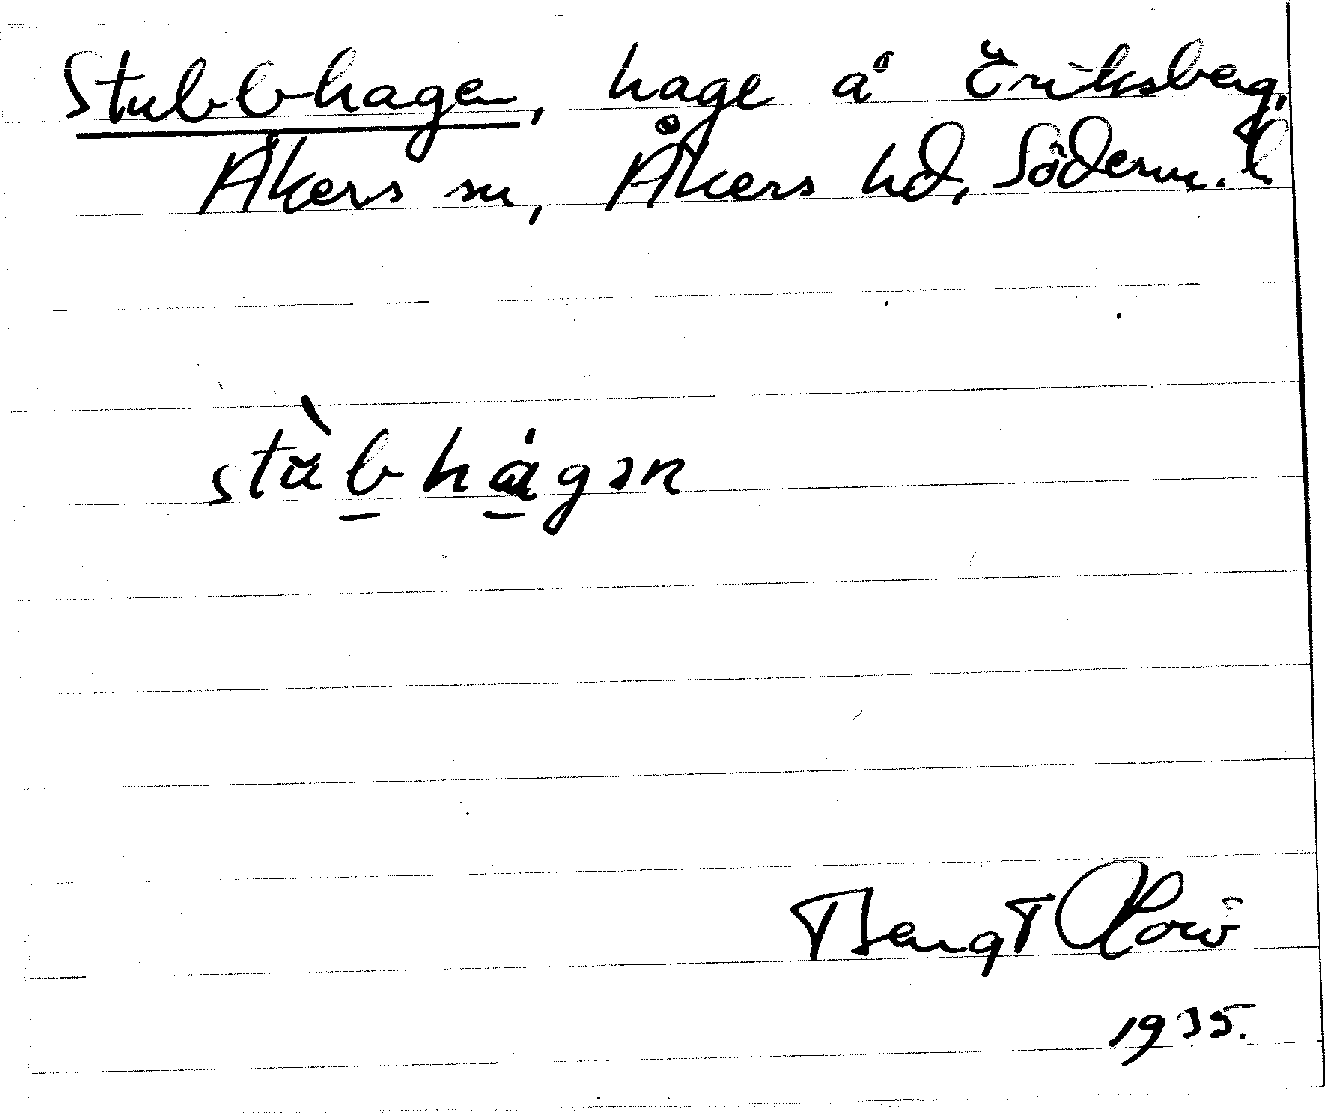 Stubbhagen, hage å Eriksberg,
Åkers sn, Åkers hd, Söderm. l.
stùbhågən
Bengt
1935.